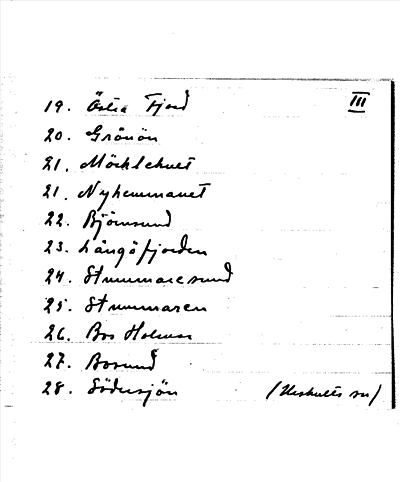 19. Östra Fjord III
20. Grönön
21. Möcklehult
21. Nyhemmanet
22. Björnsund
23. Långöfjorden
24. Strummaresund
25. Strummaren
26. Bos Holmar
27. Bosund
28. Södersjön